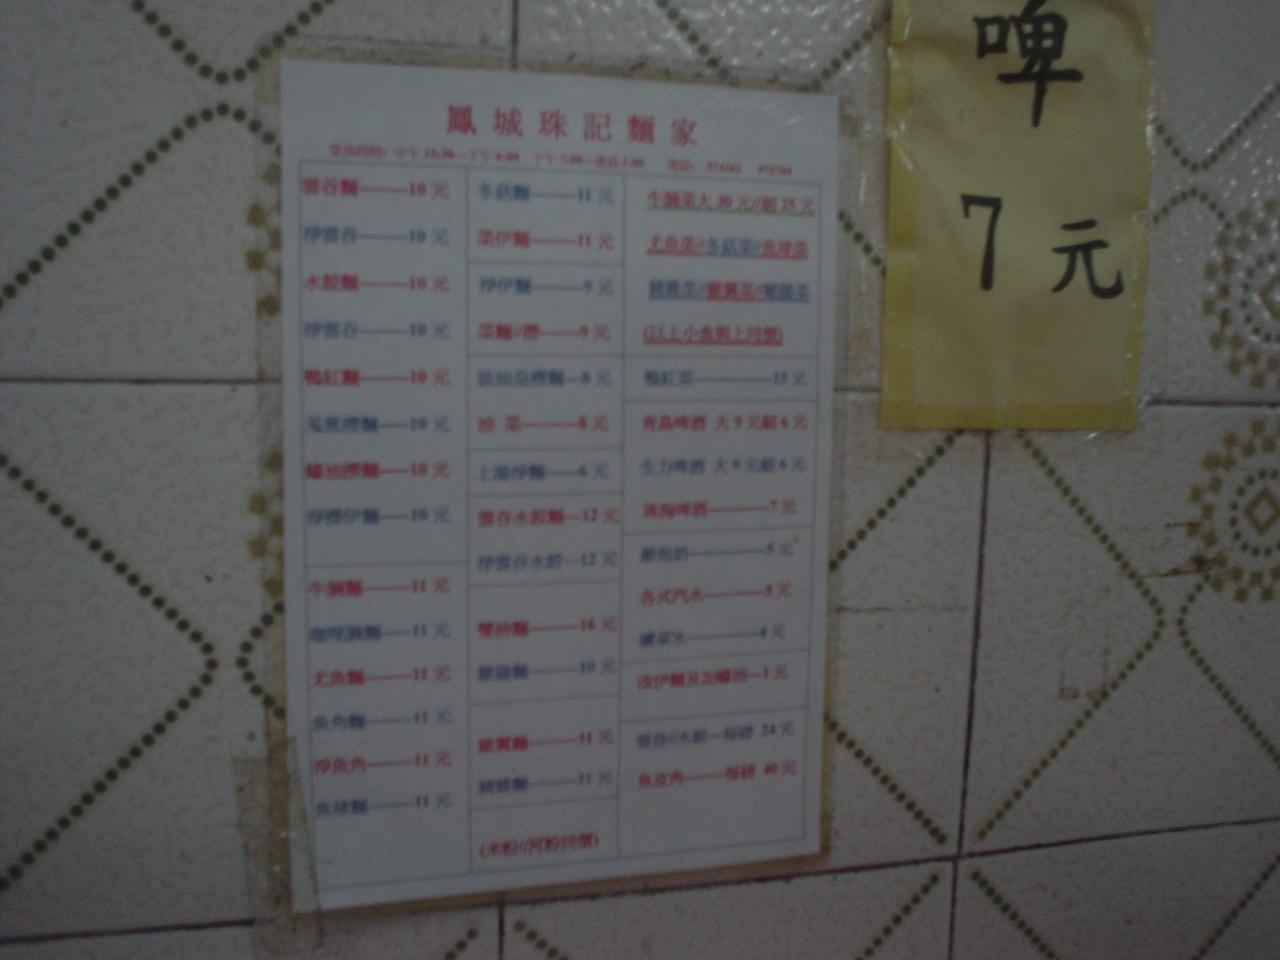 鳳城珠記麵家
雲吞麵———10 元
淨雲吞———10 元
水餃麵———10 元
淨雲吞———10 元
鴨紅麵———10 元
蠔油撈麵——10 元
淨撈伊麵——10 元
牛腩麵———11 元
咖喱腩麵——11 元
尤魚麵———11 元
魚角麵———11 元
淨魚角———11 元
魚球麵———11 元
冬菇麵———11 元
菜伊麵———11 元
淨伊麵———9 元
菜麵//撈———9 元
豉油皇撈麵—8 元
油 菜———8 元
上湯淨麵——6 元
雲吞水餃麵—12 元
淨雲吞水餃—12 元
雙拚麵———16 元
10 元
11 元
11 元
(米粉//河粉同價)
牛腩菜大 30 元//細 25 元
尤魚菜//冬菇菜//魚球菜
(以上小食與上同價)
鴨紅菜————15 元
青島啤酒 大 9 元細 6 元
生力啤酒 大 9 元細 6 元
珠海啤酒———7 元
維他奶————5 元
各式汽水———5 元
礦泉水————4 元
改伊麵及加蠔油—1 元
雲吞//水餃—每磅 24 元
魚皮角——每磅 40 元
啤
7 元